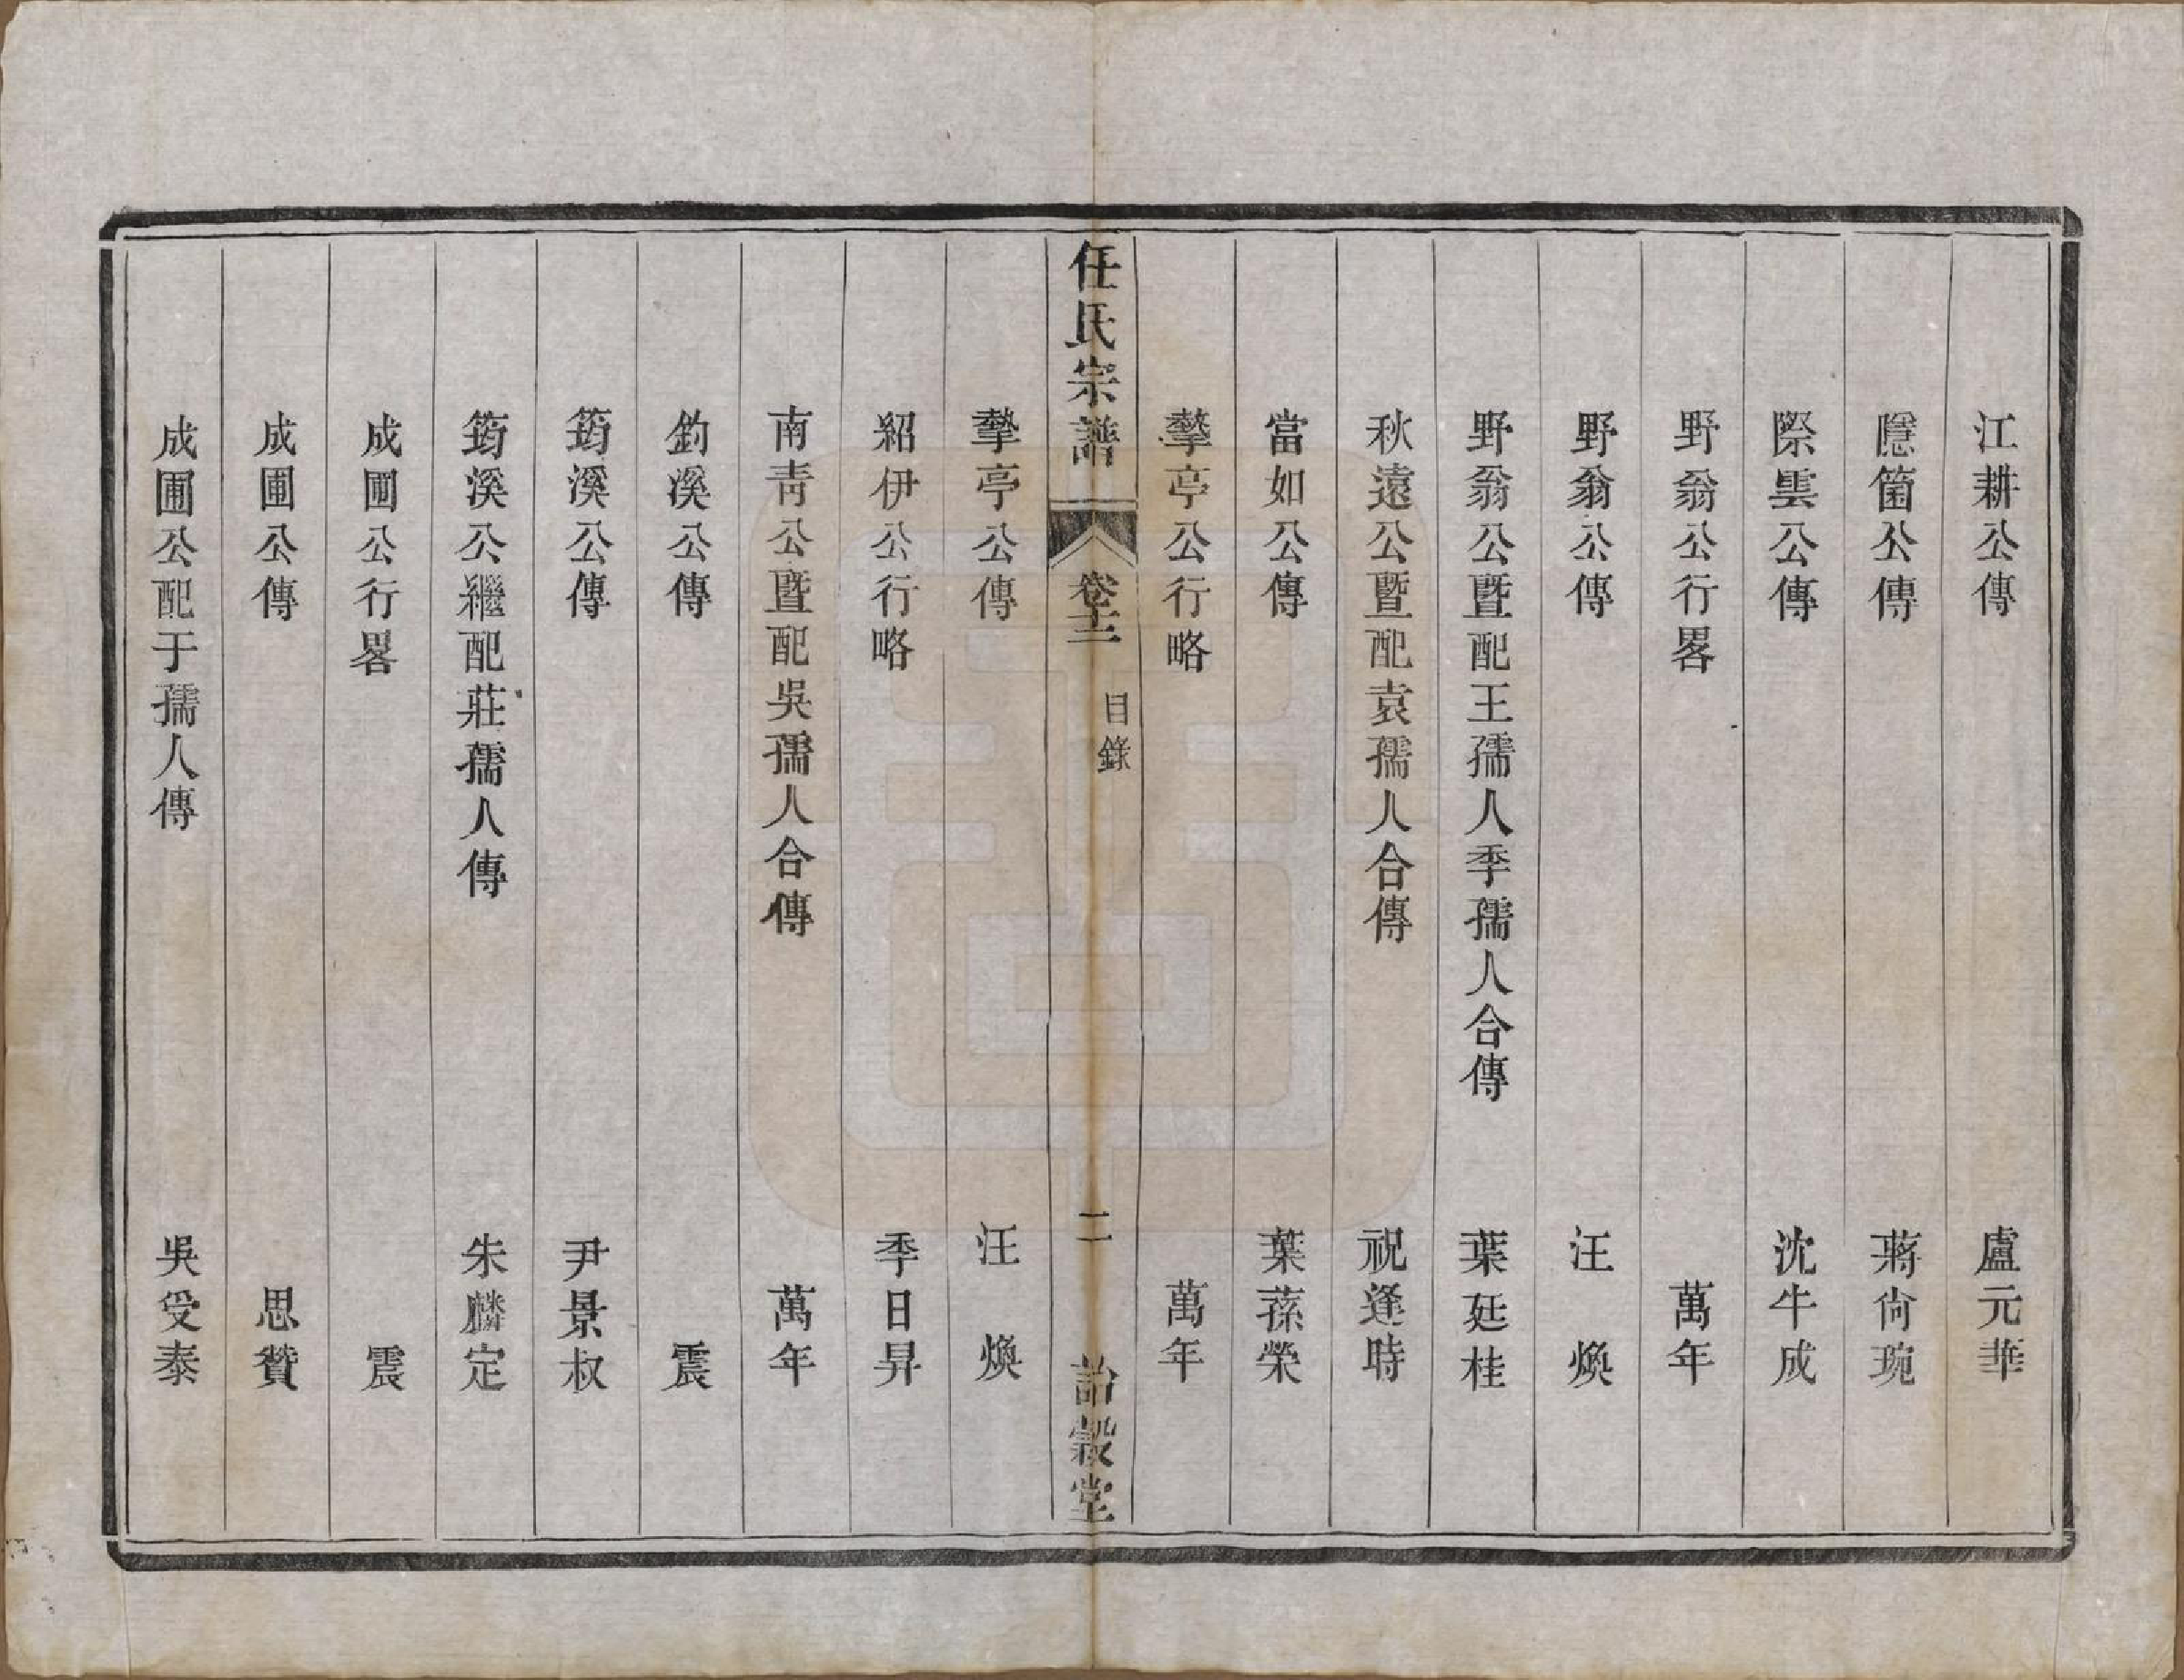 江耕公傳 盧元華
隱箇公傳 蔣尙琬
際雲公傳 沈牛成
野翁公行畧 萬年
野翁公傳 汪煥
野翁公暨配王孺人季孺人合傳 葉廷桂
秋遠公暨配袁孺人合傳 祝逢時
當如公傳 葉蓀榮
擎亭公行略 萬年
任氏宗譜 卷十二 目錄 二 詒穀堂
擎亭公傳 汪煥
紹伊公行略 季日昇
南靑公暨配吳孺人合傳 萬年
鈞溪公傳 震
筠溪公傳 尹景叔
筠溪公繼配莊孺人傳 朱麟定
成圃公行畧 震
成圃公傳 思贊
成圃公配于孺人傳 吳受泰